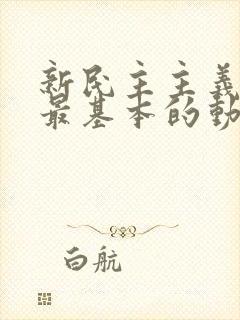 新民主主義
最基本的動
白航